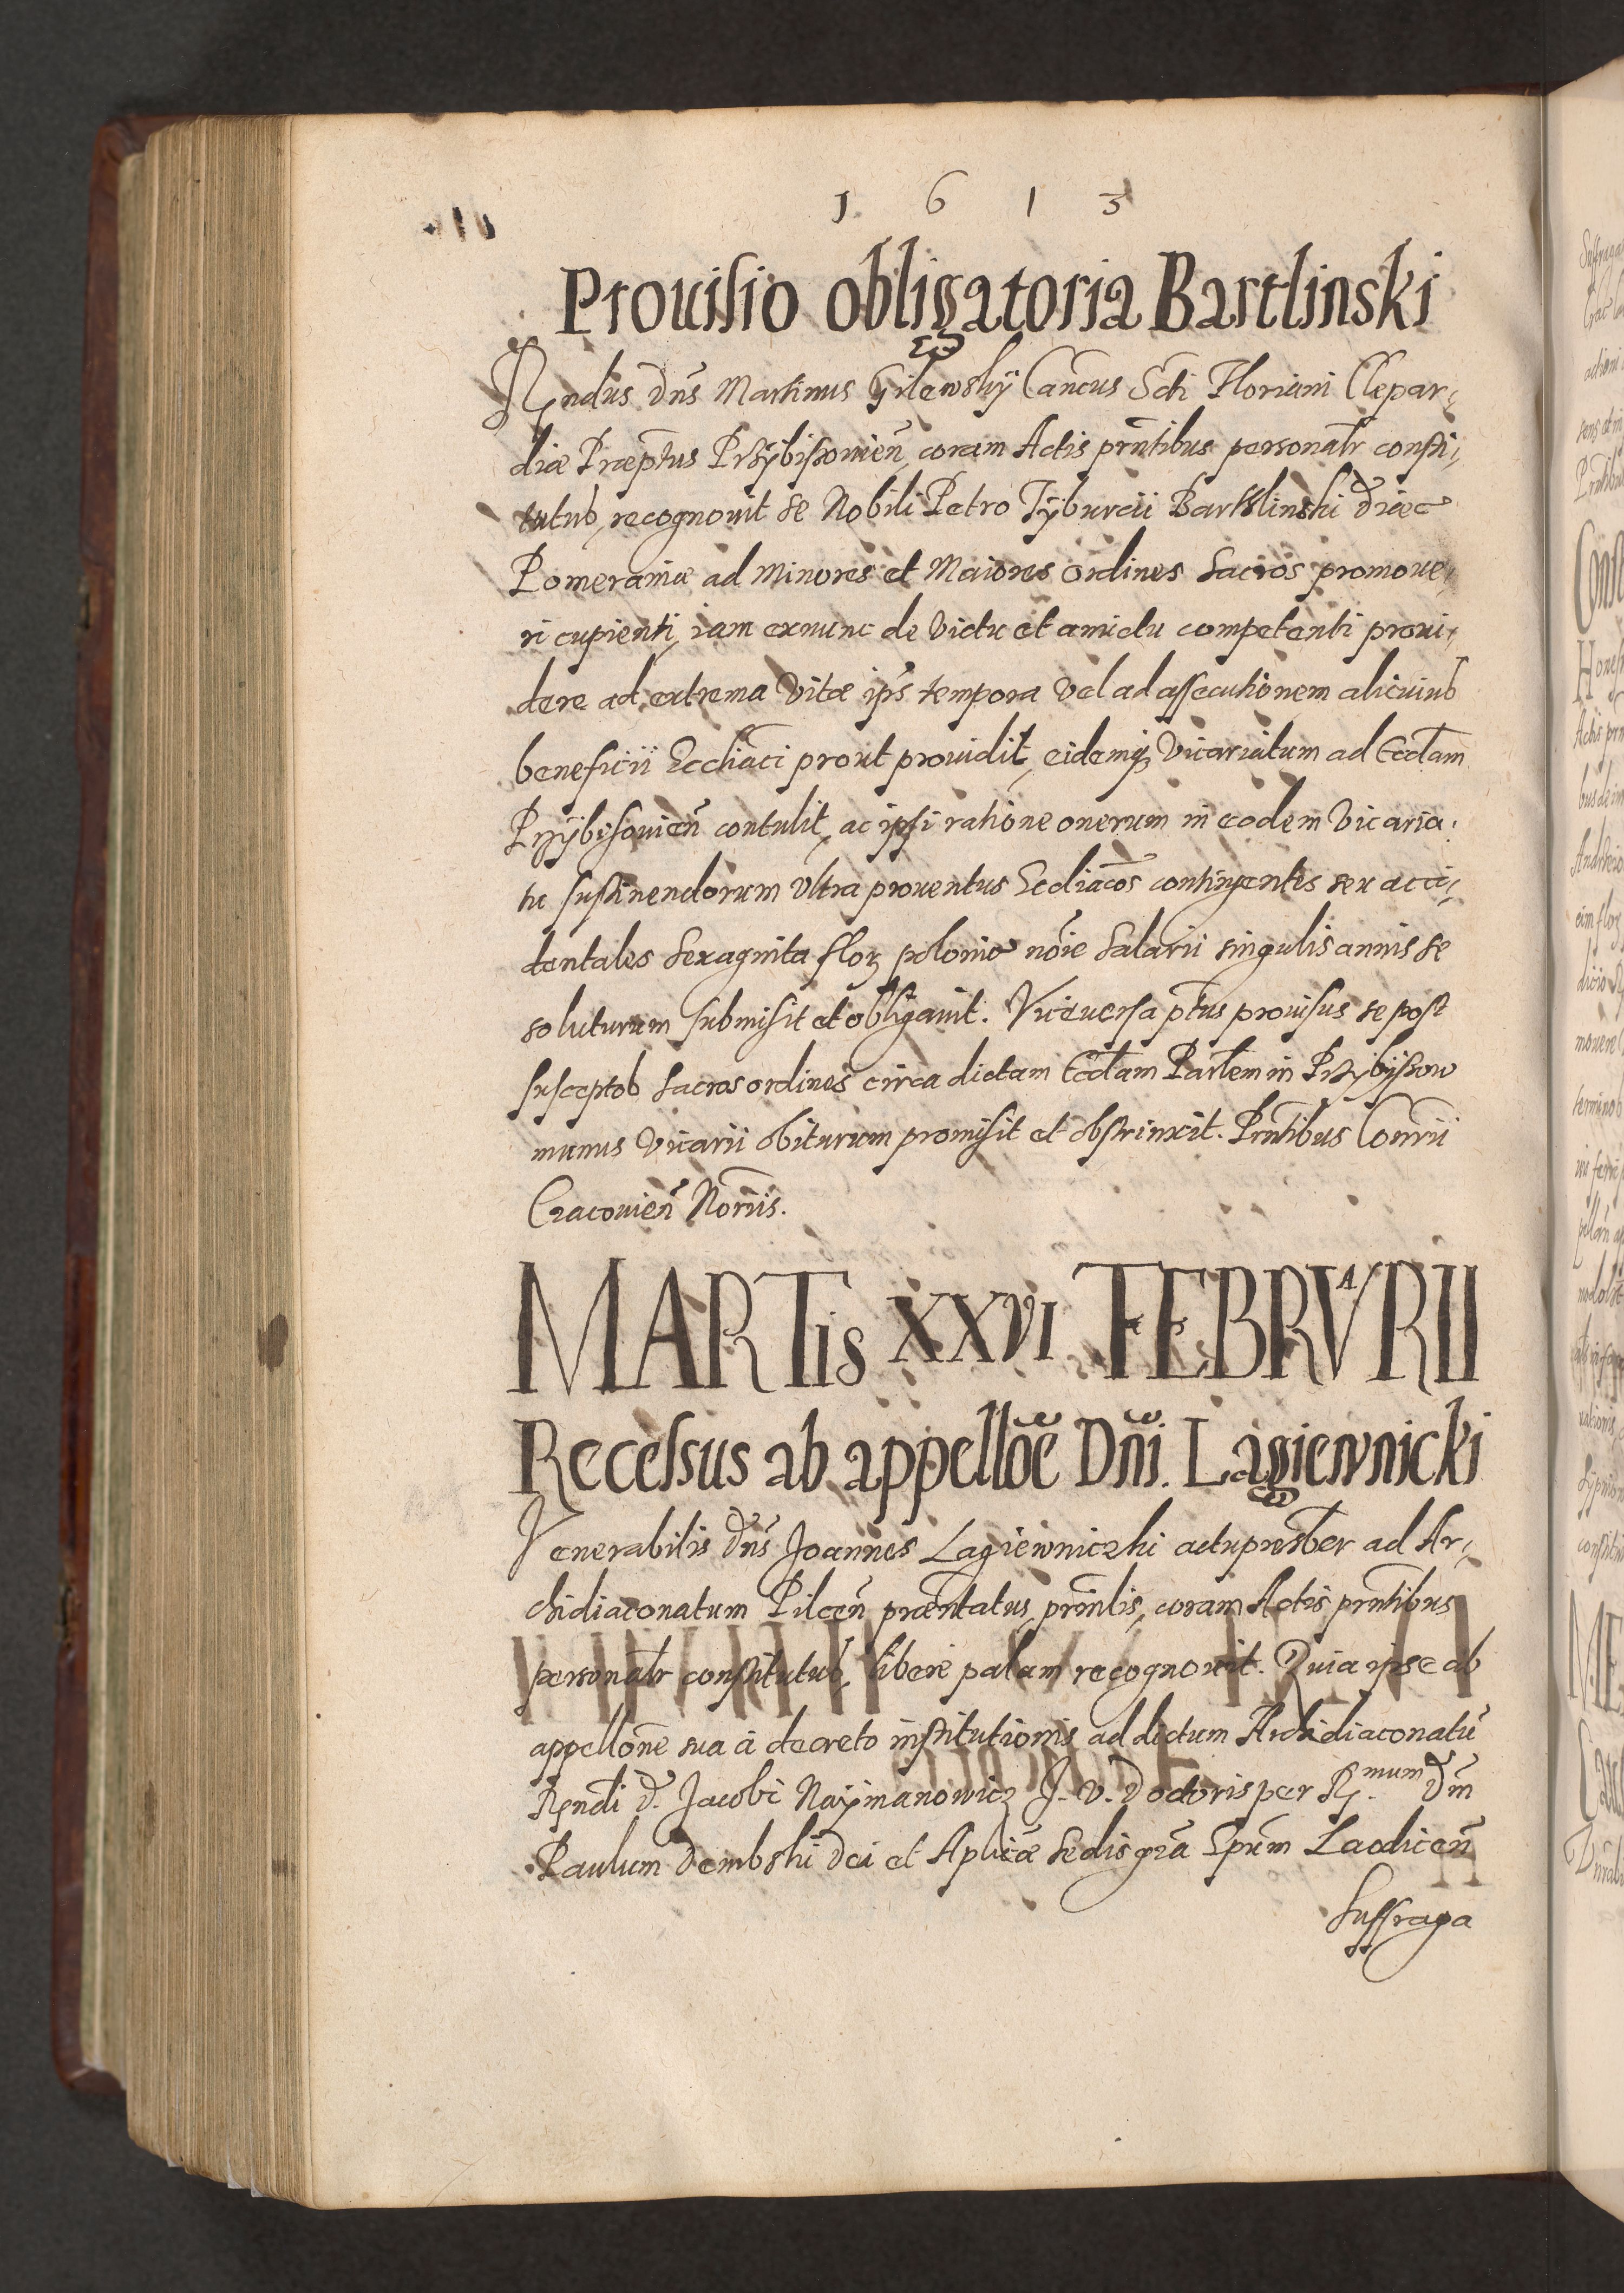 1 6 1 3
Prouisio obligatoria Bartlinski
Rndus dns Martinus Gilewskÿ Cancus Scti Floriani Clepar,
diæ Præptus Przÿbissouien, coram Actis prntibus personalr consti,
tutus, recognouit se Nobili Petro Tÿburcii Bartslinski diæc
Pomeraniæ ad minores et Maiores ordines sacros promoue,
ri cupienti, iam exnunc de Victu et amictu competenti proui,
dere ad extrema Vitæ ips tempora Vel ad assecutionem alicuius
beneficii Ecclíaci prout prouidit, eidemq Vicariatum ad Eccłam
Przÿbisouien contulit, ac ipsi ratione onerum in eodem Vicaria,
tu sustinendorum Ultra prouentus Ecclíacos contingentes seu acci,
dentales sexaginta flor polonic nóie salarii singulis annis se
soluturum submisit et obligauit. Viceuersa ptus prouisus se post
susceptos sacros ordines circa dictam Eccłam Parlem in Przÿbÿssow
munus Vicarii obiturum promisit et obstrinxit. Prntibus Consrii
Cracouien Norriis.
MARTis XXVI FEBRVARII
Recessus ab appellóe Dni. Lagiewnicki
Venerabilis Dns Joannes Lagiewniczki actupresber ad Ar,
chidiaconatum Pilcen præntatus, prinlis, coram Actis prntibus
personalr constitutus, libere palam recognouit. Quia ipse ab
appellone sua á decreto institutionis ad dictum Archidiaconatu
Rndi D. Jacobi Naÿmanowicz J. V. Doctoris per R.mum Dm
Paulum Dembski Dei et Aplicæ sedis gra Epum Laodicen
Suffraga